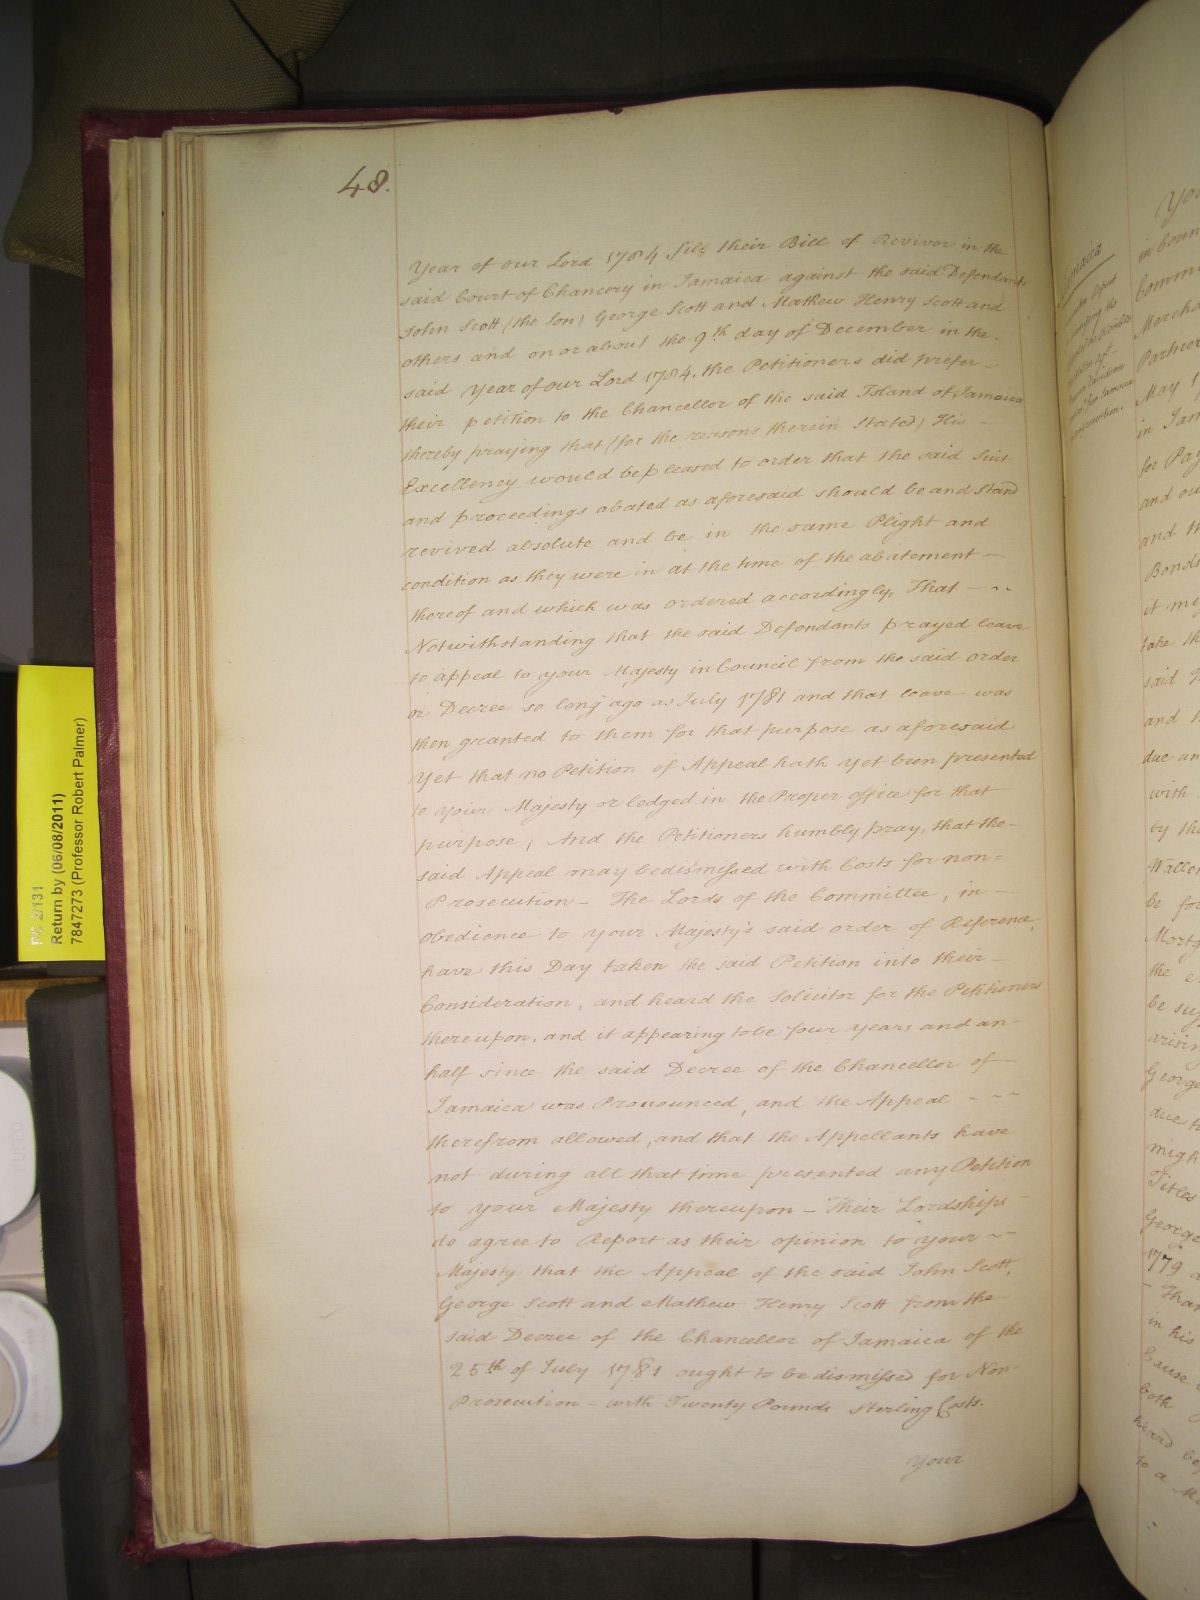 48.
Year of our Lord 1784, file their Bill of Revivor in the
said Court of Chancery in Jamaica against the said Defendants
John Scott (the Son) George Scott and Mathew Henry Scott and
others and on or about the 9th day of December in the
said Year of our Lord 1784, the Petitioners did prefer
their petition to the Chancellor of the said Island of Jamaica
thereby praying that (for the reasons therein Stated) His
Excellency would be pleased to order that the said Suit
and proceedings abated as aforesaid should be and Stand
revived absolute and be in the same Plight and
condition as they were in at the time of the abatement
thereof and which was ordered accordingly, That
Notwithstanding that the said Defendants prayed leave
to appeal to your Majesty in Council from the said order
or Decree so long ago as July 1781 and that leave was
then granted to them for that purpose as aforesaid
Yet that no Petition of Appeal hath yet been presented
to your Majesty or lodged in the Proper office for that
purpose; And the Petitioners humbly pray, that the
said Appeal may be dismissed with Costs for non=
Prosecution – The Lords of the Committee, in
obedience to your Majesty's said order of Reference,
have this Day taken the said Petition into their
Consideration, and heard the Solicitor for the Petitioners
thereupon, and it appearing to be four years and an
half since the said Decree of the Chancellor of
Jamaica was Pronounced, and the Appeal
therefrom allowed, and that the Appellants have
not during all that time presented any Petition
to your Majesty thereupon – Their Lordships
do agree to Report as their opinion to your
Majesty that the Appeal of the said John Scott,
George Scott and Mathew Henry Scott from the
said Decree of the Chancellor of Jamaica of the
25th of July 1781 ought to be dismissed for Non-
Prosecution – with Twenty Pounds Sterling Costs.
Your
PC 2/131
Return by (06/08/2011)
7847273 (Professor Robert Palmer)
Jamaica
in Coun
Comm
Mercha
Partner
May 1
in Jam
for Pay
and
and th
Bonds
it
take th
said
and
due an
with
by the
Waller
be for
Mortg
the
be
arisin
George
due
migh
Titles
George
1779
Tha
in his
Cause
both
heard
to a